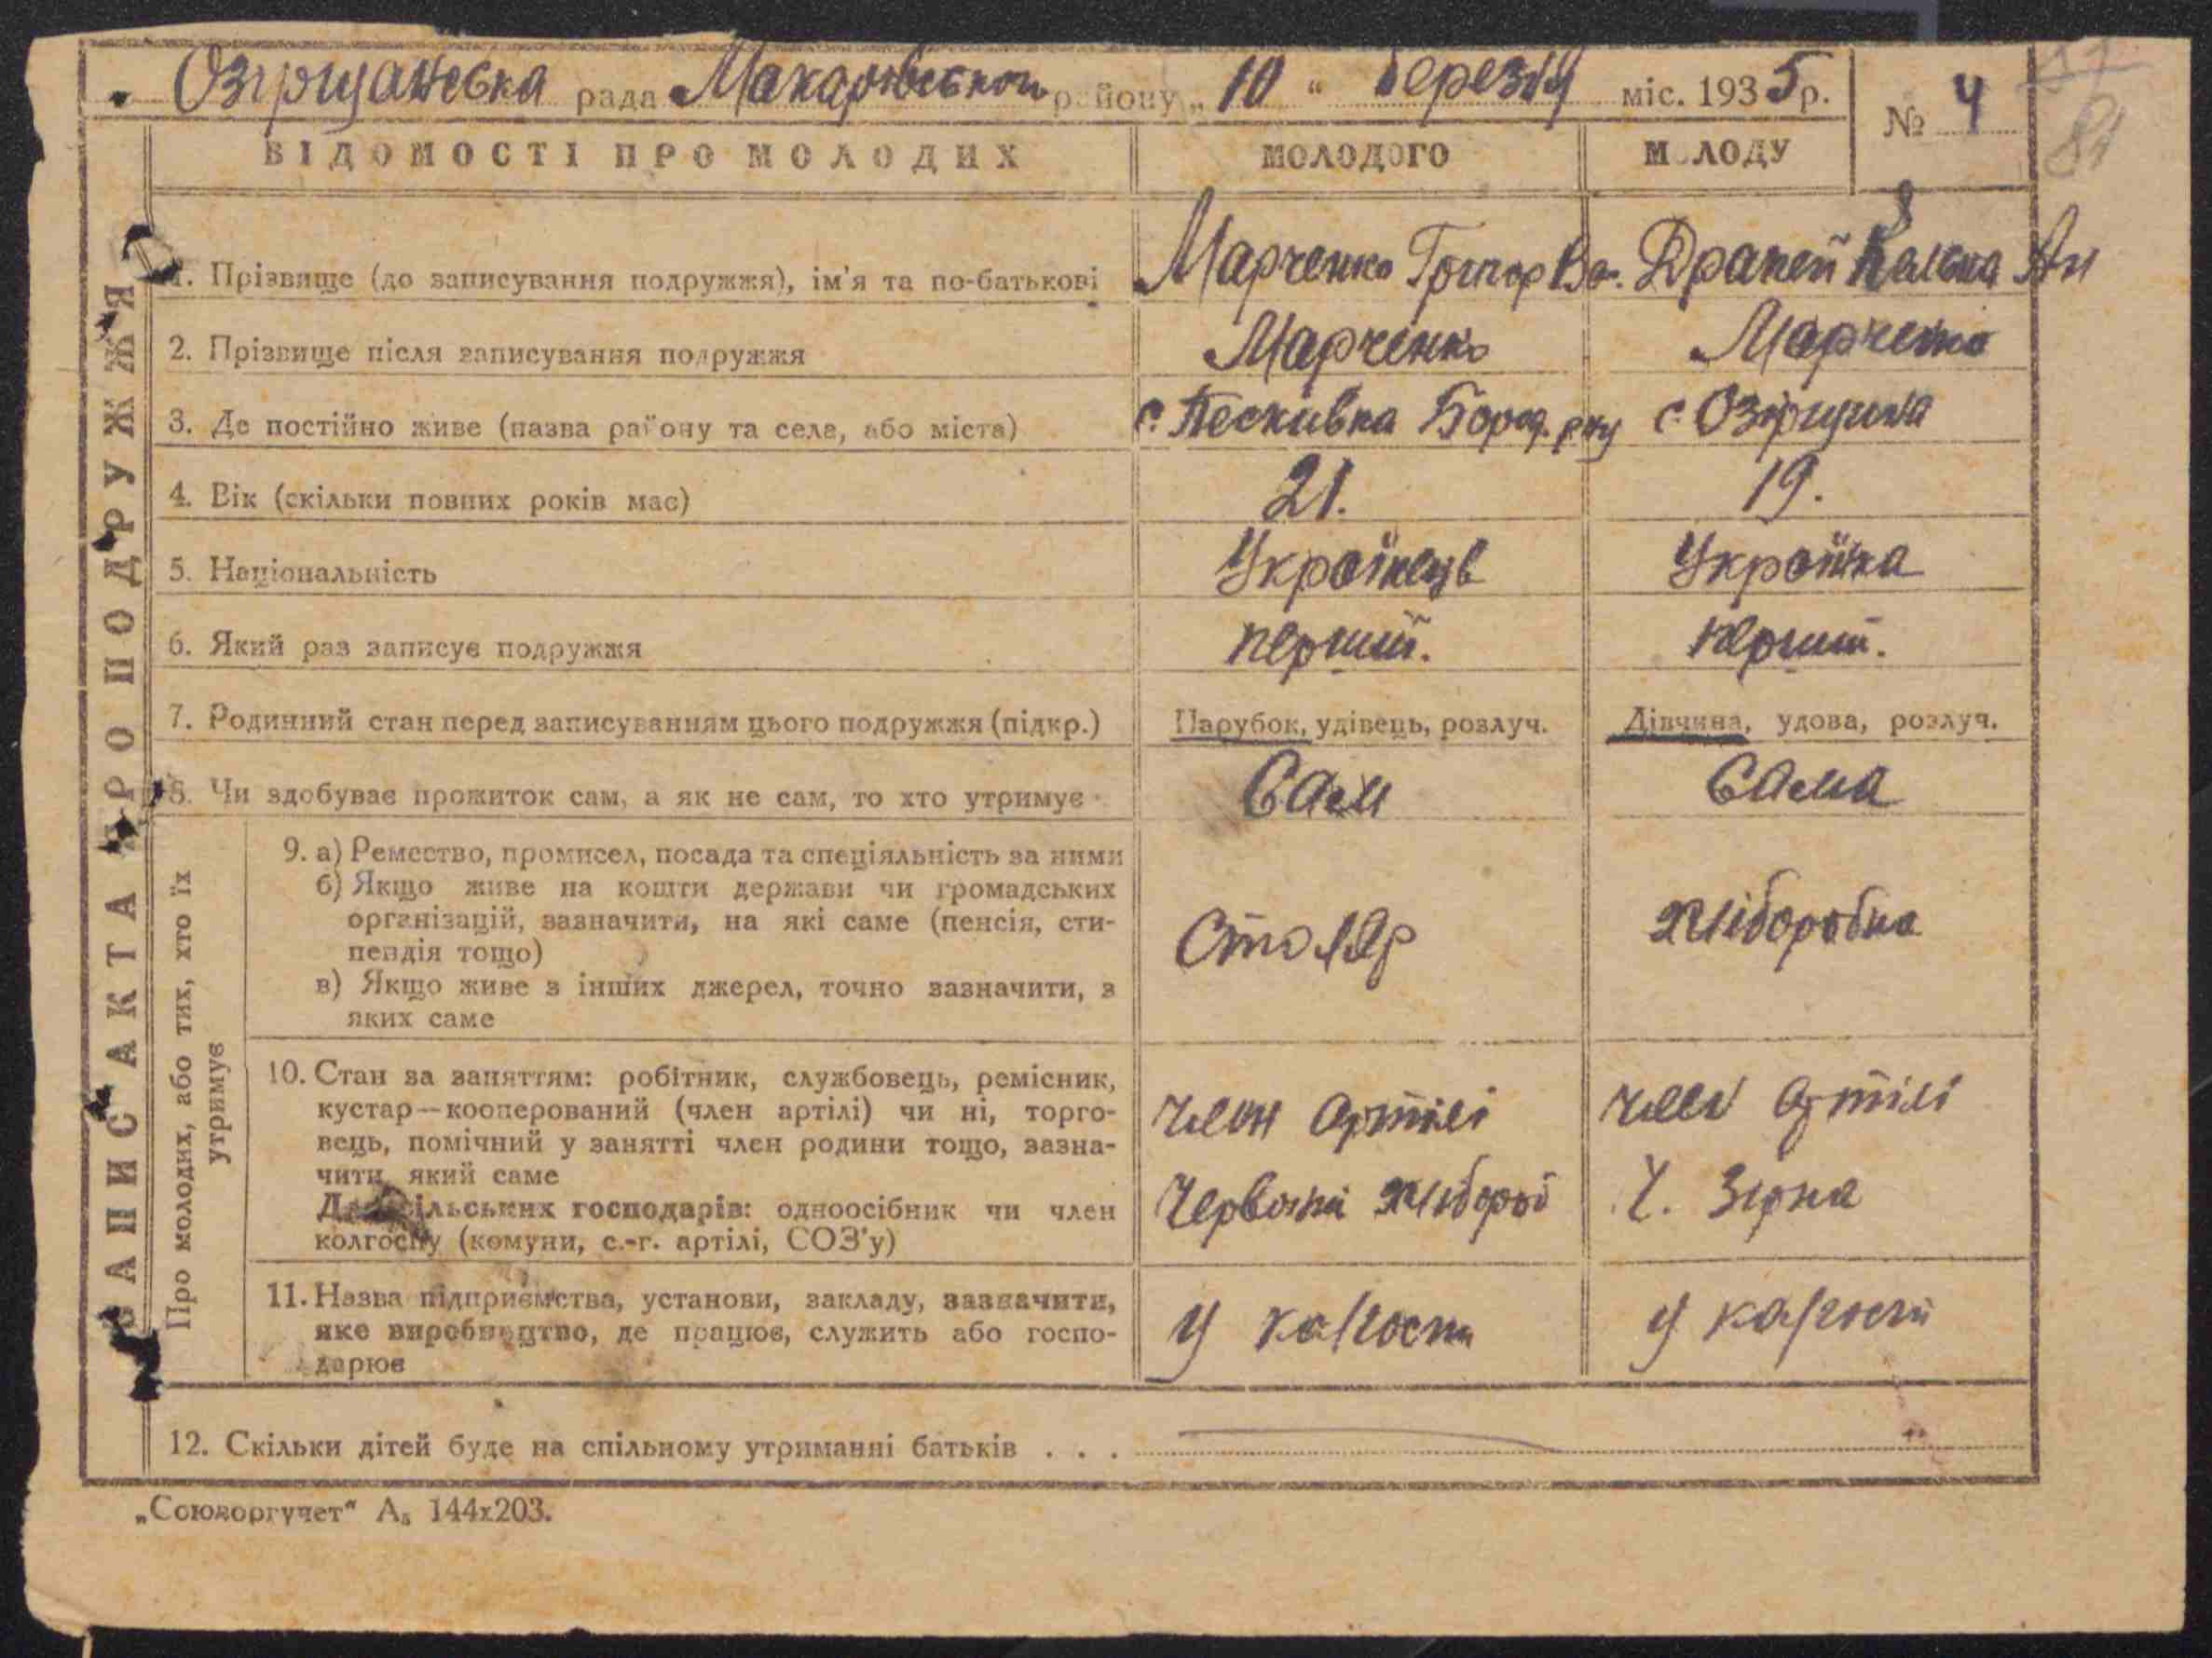 Озірщанська рада Макарівського району „10“ березня міс. 1935 р.
№ 4
81
ЗАПИС АКТА ПРО ПОДРУЖЖЯ
ВІДОМОСТІ ПРО МОЛОДИХ МОЛОДОГО МОЛОДУ
1. Прізвище (до записування подружжя), ім'я та по-батькові Марченко Григор Ва. Драпей Ан
2. Прізвище після записування подружжя Марченко Марченко
3. Де постійно живе (назва району та села, або міста) с. Пескивка Бород. р-ну с. Озірщина
4. Вік (скільки повних років має) 21. 19.
5. Національність Українець Українка
6. Який раз записує подружжя перший. перший.
7. Родинний стан перед записуванням цього подружжя (підкр.) Парубок, удівець, розлуч. Дівчина, удова, розлуч.
8. Чи здобуває прожиток сам, а як не сам, то хто утримує Сам Сама
Про молодих, або тих, хто їх
утримує
9. а) Ремество, промисел, посада та спеціяльність за ними
б) Якщо живе на кошти держави чи громадських
організацій, зазначити, на які саме (пенсія, сти-
пендія тощо)
в) Якщо живе з інших джерел, точно зазначити, з
яких саме
Столяр хліборобка
10. Стан за заняттям: робітник, службовець, ремісник,
кустар—кооперований (член артілі) чи ні, торго-
вець, помічний у занятті член родини тощо, зазна-
чити який саме
Для сільських господарів: одноосібник чи член
колгоспу (комуни, с.-г. артілі, СОЗ'у)
член артілі член артілі
Червоний хлібороб Ч. Зірка
11. Назва підприємства, установи, закладу, зазначити,
яке виробництво, де працює, служить або госпо-
дарює
у колгоспі у колгоспі
12. Скільки дітей буде на спільному утриманні батьків . . .
„Союзоргучет“ А₅ 144х203.